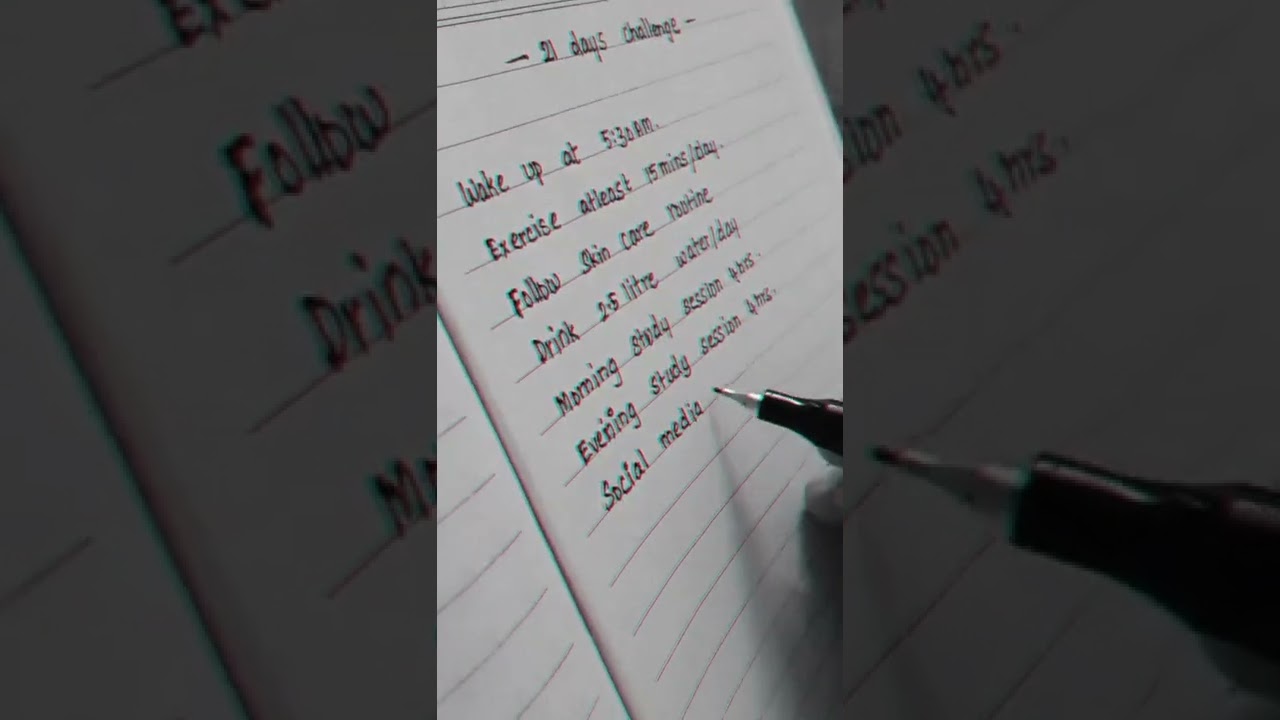 — 21 days challenge —
Wake up at 5:30 AM.
Exercise atleast 15 mins/day.
Follow Skin care routine
Drink 2.5 litre water/day
Morning study session 4hrs.
Evening study session 4hrs.
Social media